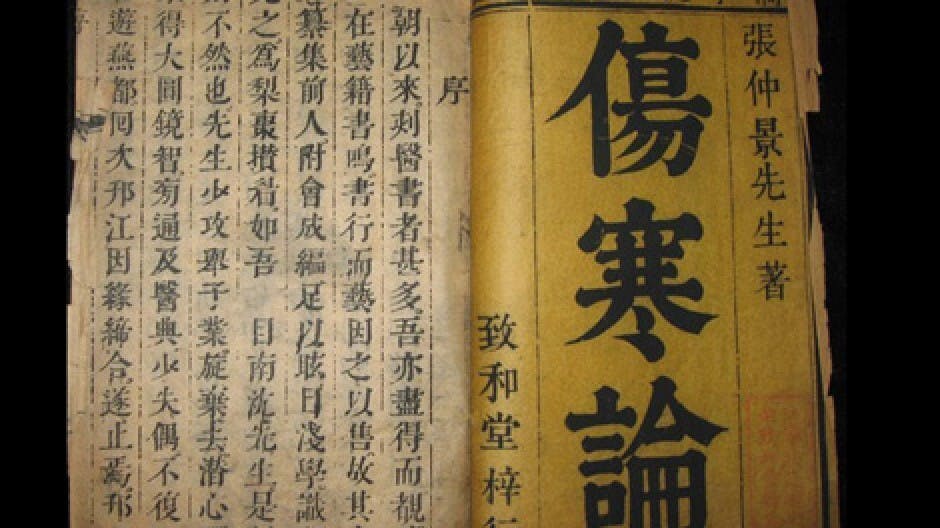 張仲景先生著
傷寒論
致和堂梓行
序
朝以來刻醫書者甚多吾亦盡得而覩
在藝籍書鳴書行而藝因之以售故其
纂集前人附會成編足以眩目淺學識
之爲梨棗攢若如吾 目南沈先生是
不然也先生少攻舉子業旋棄去潛心
得大圓鏡智旁通及醫典少失偶不復
遊燕都回次邗江因緣締合遂止焉邗